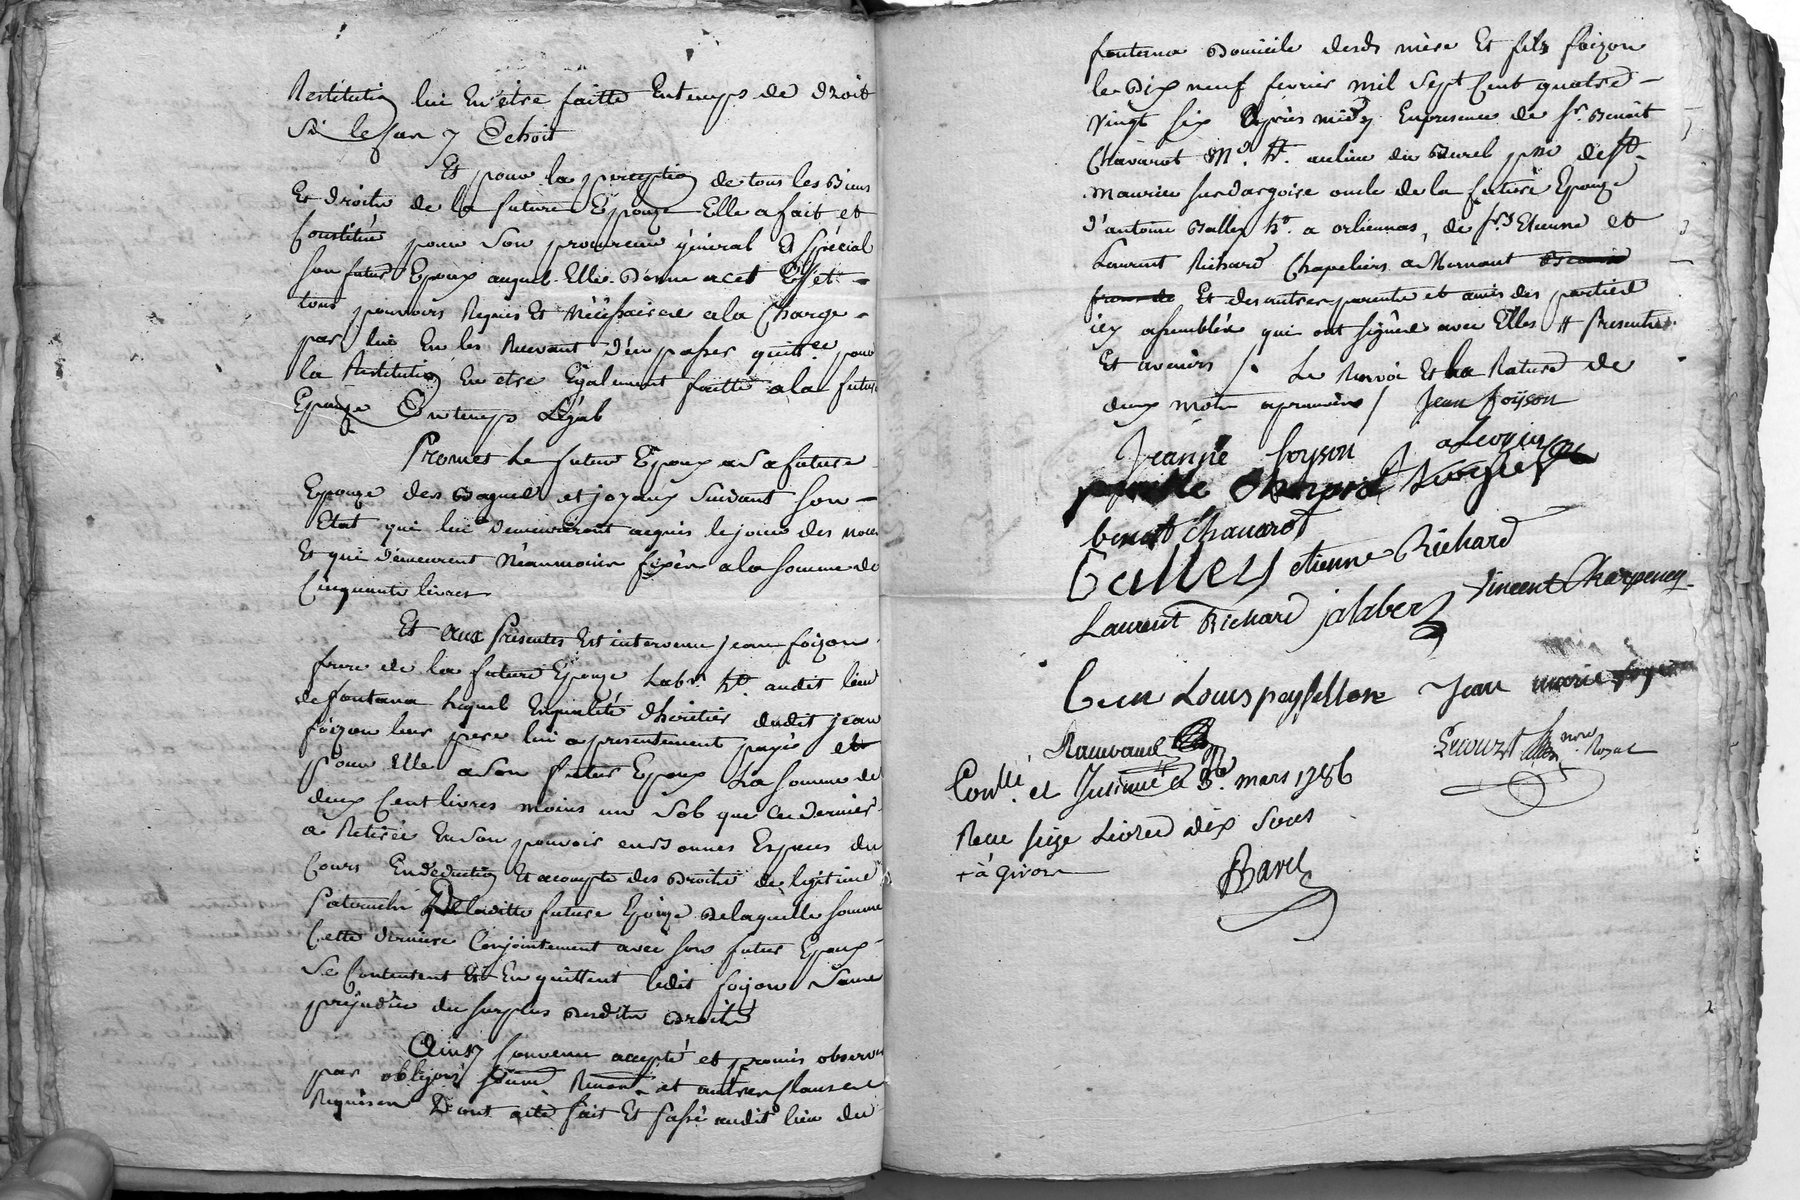 Restitution lui En etre faitte En temps de droit
Si le Cas y Echoit
Et pour la perception de tous les Biens
Et droits de la future Epouze Elle a fait et
Constitué pour Son procureur général Et Spécial
Son futur Epoux auquel Elle Donne a cet Effet
tous pouvoirs Requis Et Nécéssaires a la Charge
par lui En les Recevant d'en passer quittce pour
la Restitution En etre Egalement faitte a la future
Epouze En temps Légal
Promet Le futur Epoux a Sa future
Epouze des Bagues et joyaux Suivant Son
Etat qui lui Demeureront acquis le jour des noces
Et qui demeurent Néanmoins fixés a la Somme de
Cinquante livres
Et aux Présentes Est intervenu jean foizon
frere de la future Epouze Labr. ht. audit lieu
de fontana Lequel En qualité d'héritier dudit jean
foizon leur pere lui a presentement payé et
pour Elle a Son futur Epoux La Somme de
deux Cent livres moins un Sol que Ce dernier
a Retiré En Son pouvoir en Bonnes Especes du
Cours En déduction Et acompte des Droits de légitime
Paternels De laditte future Epouze De laquelle Somme
Cette derniere Conjointement avec Son futur Epoux
Se Contentent Et En quittent ledit foizon Sans
préjudice du Surplus desdits Droits
Ainsy Convenu accepté et promis observer
par obligons Soumons Renons et autres Clauses
Requises Dont acte fait Et Passé audit lieu de
fontana Domicile desds mère Et fils foizon
le Dix neuf fevrier mil Sept Cent quatre
vingt Six après midy En presence de Sr. Benoit
Chavarot Md. ht. au lieu du Burel psse de St.
Maurice Sur dargoire oncle de la future Epouze
d'antoine Balley ht. a orliennas, de Srs Etienne et
Laurent Richard Chapeliers a Mornant
Et des autres parents et amis des parties
icy assemblés qui ont Signés avec Elles # Presents
Et avenirs /. Le Renvoi Et la Rature de
deux mots aprouvés / Jean foizon
Jeanne foyson
benoit Chavarot
Balley etienne Richard
Laurent Richard jalabert Vincent Charpenay
Louis peysselton Jean marie
Raimvaud
Conllé. et Insinué a mars 1786
Recu Seize Livres dix Sous
a Givors
Bavel